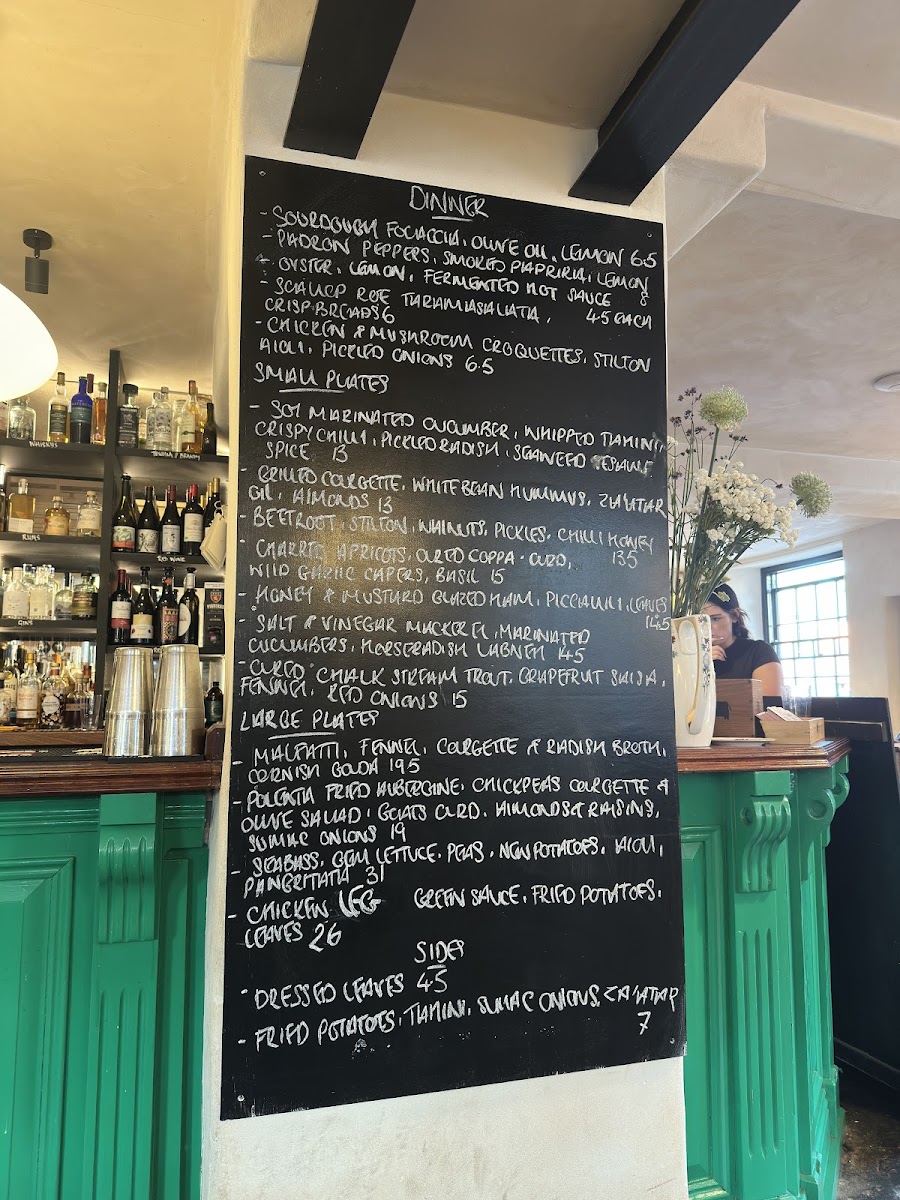 DINNER
- SOURDOUGH FOCACCIA, OLIVE OIL, LEMON 6.5
- PADRON PEPPERS, SMOKED PAPRIKA, LEMON
8
- OYSTER, LEMON, FERMENTED HOT SAUCE
4.5 EACH
- SCALLOP ROE TARAMASALATA,
CRISPBREADS 6
- CHICKEN & MUSHROOM CROQUETTES, STILTON
AIOLI, PICKLED ONIONS 6.5
SMALL PLATES
- SOY MARINATED CUCUMBER, WHIPPED TAHINI,
CRISPY CHILLI, PICKLED RADISH, SEAWEED SESAME
SPICE 13
- GRILLED COURGETTE, WHITE BEAN HUMMUS, ZA'ATAR
OIL, ALMONDS 13
- BEETROOT, STILTON, WALNUTS, PICKLES, CHILLI HONEY
13.5
- CHARRED APRICOTS, CURED COPPA, CURD,
WILD GARLIC CAPERS, BASIL 15
- HONEY & MUSTARD GLAZED HAM, PICCALILLI, LEAVES
14.5
- SALT & VINEGAR MACKEREL, MARINATED
CUCUMBERS, HORSERADISH LABNEH 14.5
- CURED CHALK STREAM TROUT, GRAPEFRUIT SALSA,
FENNEL, RED ONIONS 15
LARGE PLATES
- MALFATTI, FENNEL, COURGETTE & RADISH BROTH,
CORNISH GOUDA 19.5
- POLENTA FRIED AUBERGINE, CHICKPEAS COURGETTE &
OLIVE SALAD, GOATS CURD, ALMONDS & RAISINS,
SUMAC ONIONS 19
- SEABASS, GEM LETTUCE, PEAS, NEW POTATOES, AIOLI,
PANGRITATA 31
- CHICKEN LEG GREEN SAUCE, FRIED POTATOES,
LEAVES 26
SIDES
- DRESSED LEAVES 4.5
- FRIED POTATOES, TAHINI, SUMAC ONIONS, ZA'ATAR
7
WHISKEYS
TEQUILA & BRANDY
RUMS
RED WINE
GINS